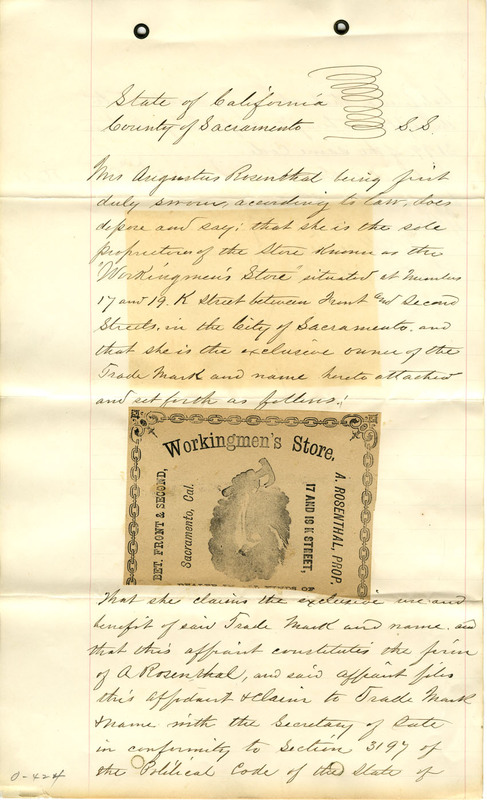 State of California
County of Sacramento S.S.
Mrs Augustus Rosenthal being first
duly sworn, according to law, does
depose and say: that she is the sole
proprietoress of the Store known as the
"Workingmen's Store" situated at Numbers
17 and 19. K Street between Front and Second
Streets, in the City of Sacramento. and
that she is the exclusive owner of the
Trade Mark and name hereto attached
and set forth as follows:
Workingmen's Store.
BET. FRONT & SECOND,
Sacramento, Cal.
17 AND 19 K STREET,
A. ROSENTHAL, PROP.
That she claims the exclusive use and
benefit of said Trade Mark and name. and
that this affiant constitutes the firm
of A Rosenthal, and said affiant files
this affidavit & claim to Trade Mark
& name with the Secretary of State
in conformity to Section 3197 of
the Political Code of the State of
0-424